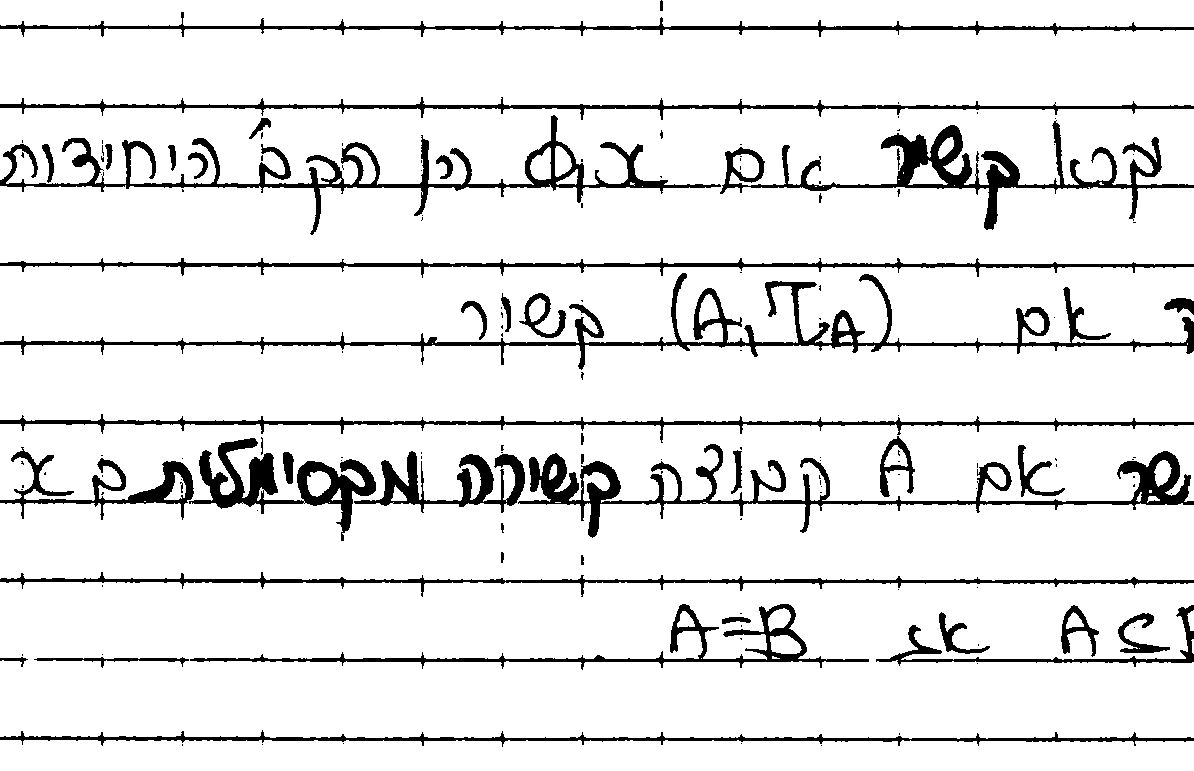 נקרא קשיר אם X,∅ הן הקב' היחידות
אם (A,T_A) קשיר.
שר אם A קבוצה קשירה מקסימלית ב X
A⊆B אז A=B